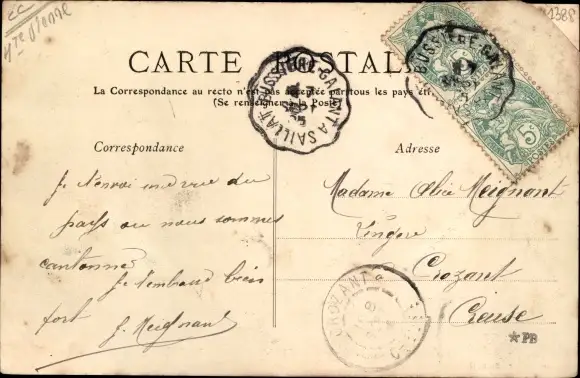 cc
Hte Vienne
1388
CARTE POSTALE
La Correspondance au recto n'est pas acceptée par tous les pays étr
(Se renseigner à la Poste)
BUSSIÈRE-GALANT A SAILLAT
BUSSIÈRE-GALANT
5
Correspondance
Adresse
Je t'envoi une vue du
pays ou nous sommes
cantonné
Je t'embrasse bien
fort J. Meignant
Madame Alice Meignant
Lingère
Crozant
Creuse
CROZANT
PB